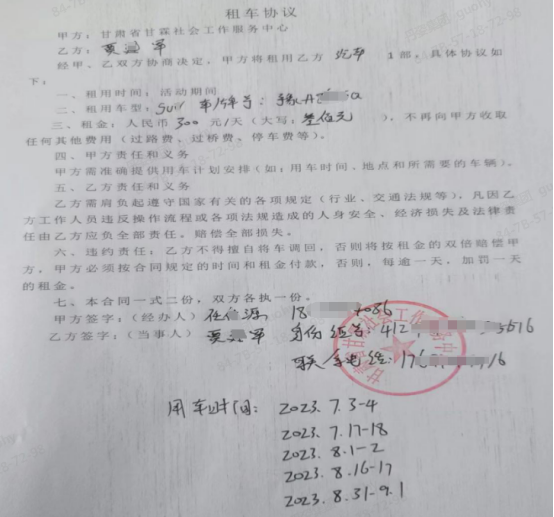 租车协议
甲方：甘肃省甘霖社会工作服务中心
乙方：贾 军
经甲、乙双方协商决定，甲方将租用乙方 汽车 1部，具体协议如
下：
一、租用时间：活动期间
二、租用车型：SUV 车牌号：豫A
三、租金：人民币 300 元/天（大写：叁佰元 ），不再向甲方收取
任何其他费用（过路费、过桥费、停车费等）。
四、甲方责任和义务
甲方需准确提供用车计划安排（如：用车时间、地点和所需要的车辆）。
五、乙方责任和义务
乙方需肩负起遵守国家有关的各项规定（行业、交通法规等），凡因乙
方工作人员违反操作流程或各项法规造成的人身安全、经济损失及法律责
任由乙方应负全部责任。赔偿全部损失。
六、违约责任：乙方不得擅自将车调回，否则将按租金的双倍赔偿甲
方，甲方必须按合同规定的时间和租金付款，否则，每逾一天，加罚一天
的租金。
七、本合同一式二份，双方各执一份。
甲方签字：（经办人）任 18 7086
乙方签字：（当事人）贾 军 身份证号：412 5516
联系电话：176 16
用车时间：2023.7.3-4
2023.7.17-18
2023.8.1-2
2023.8.16-17
2023.8.31-9.1